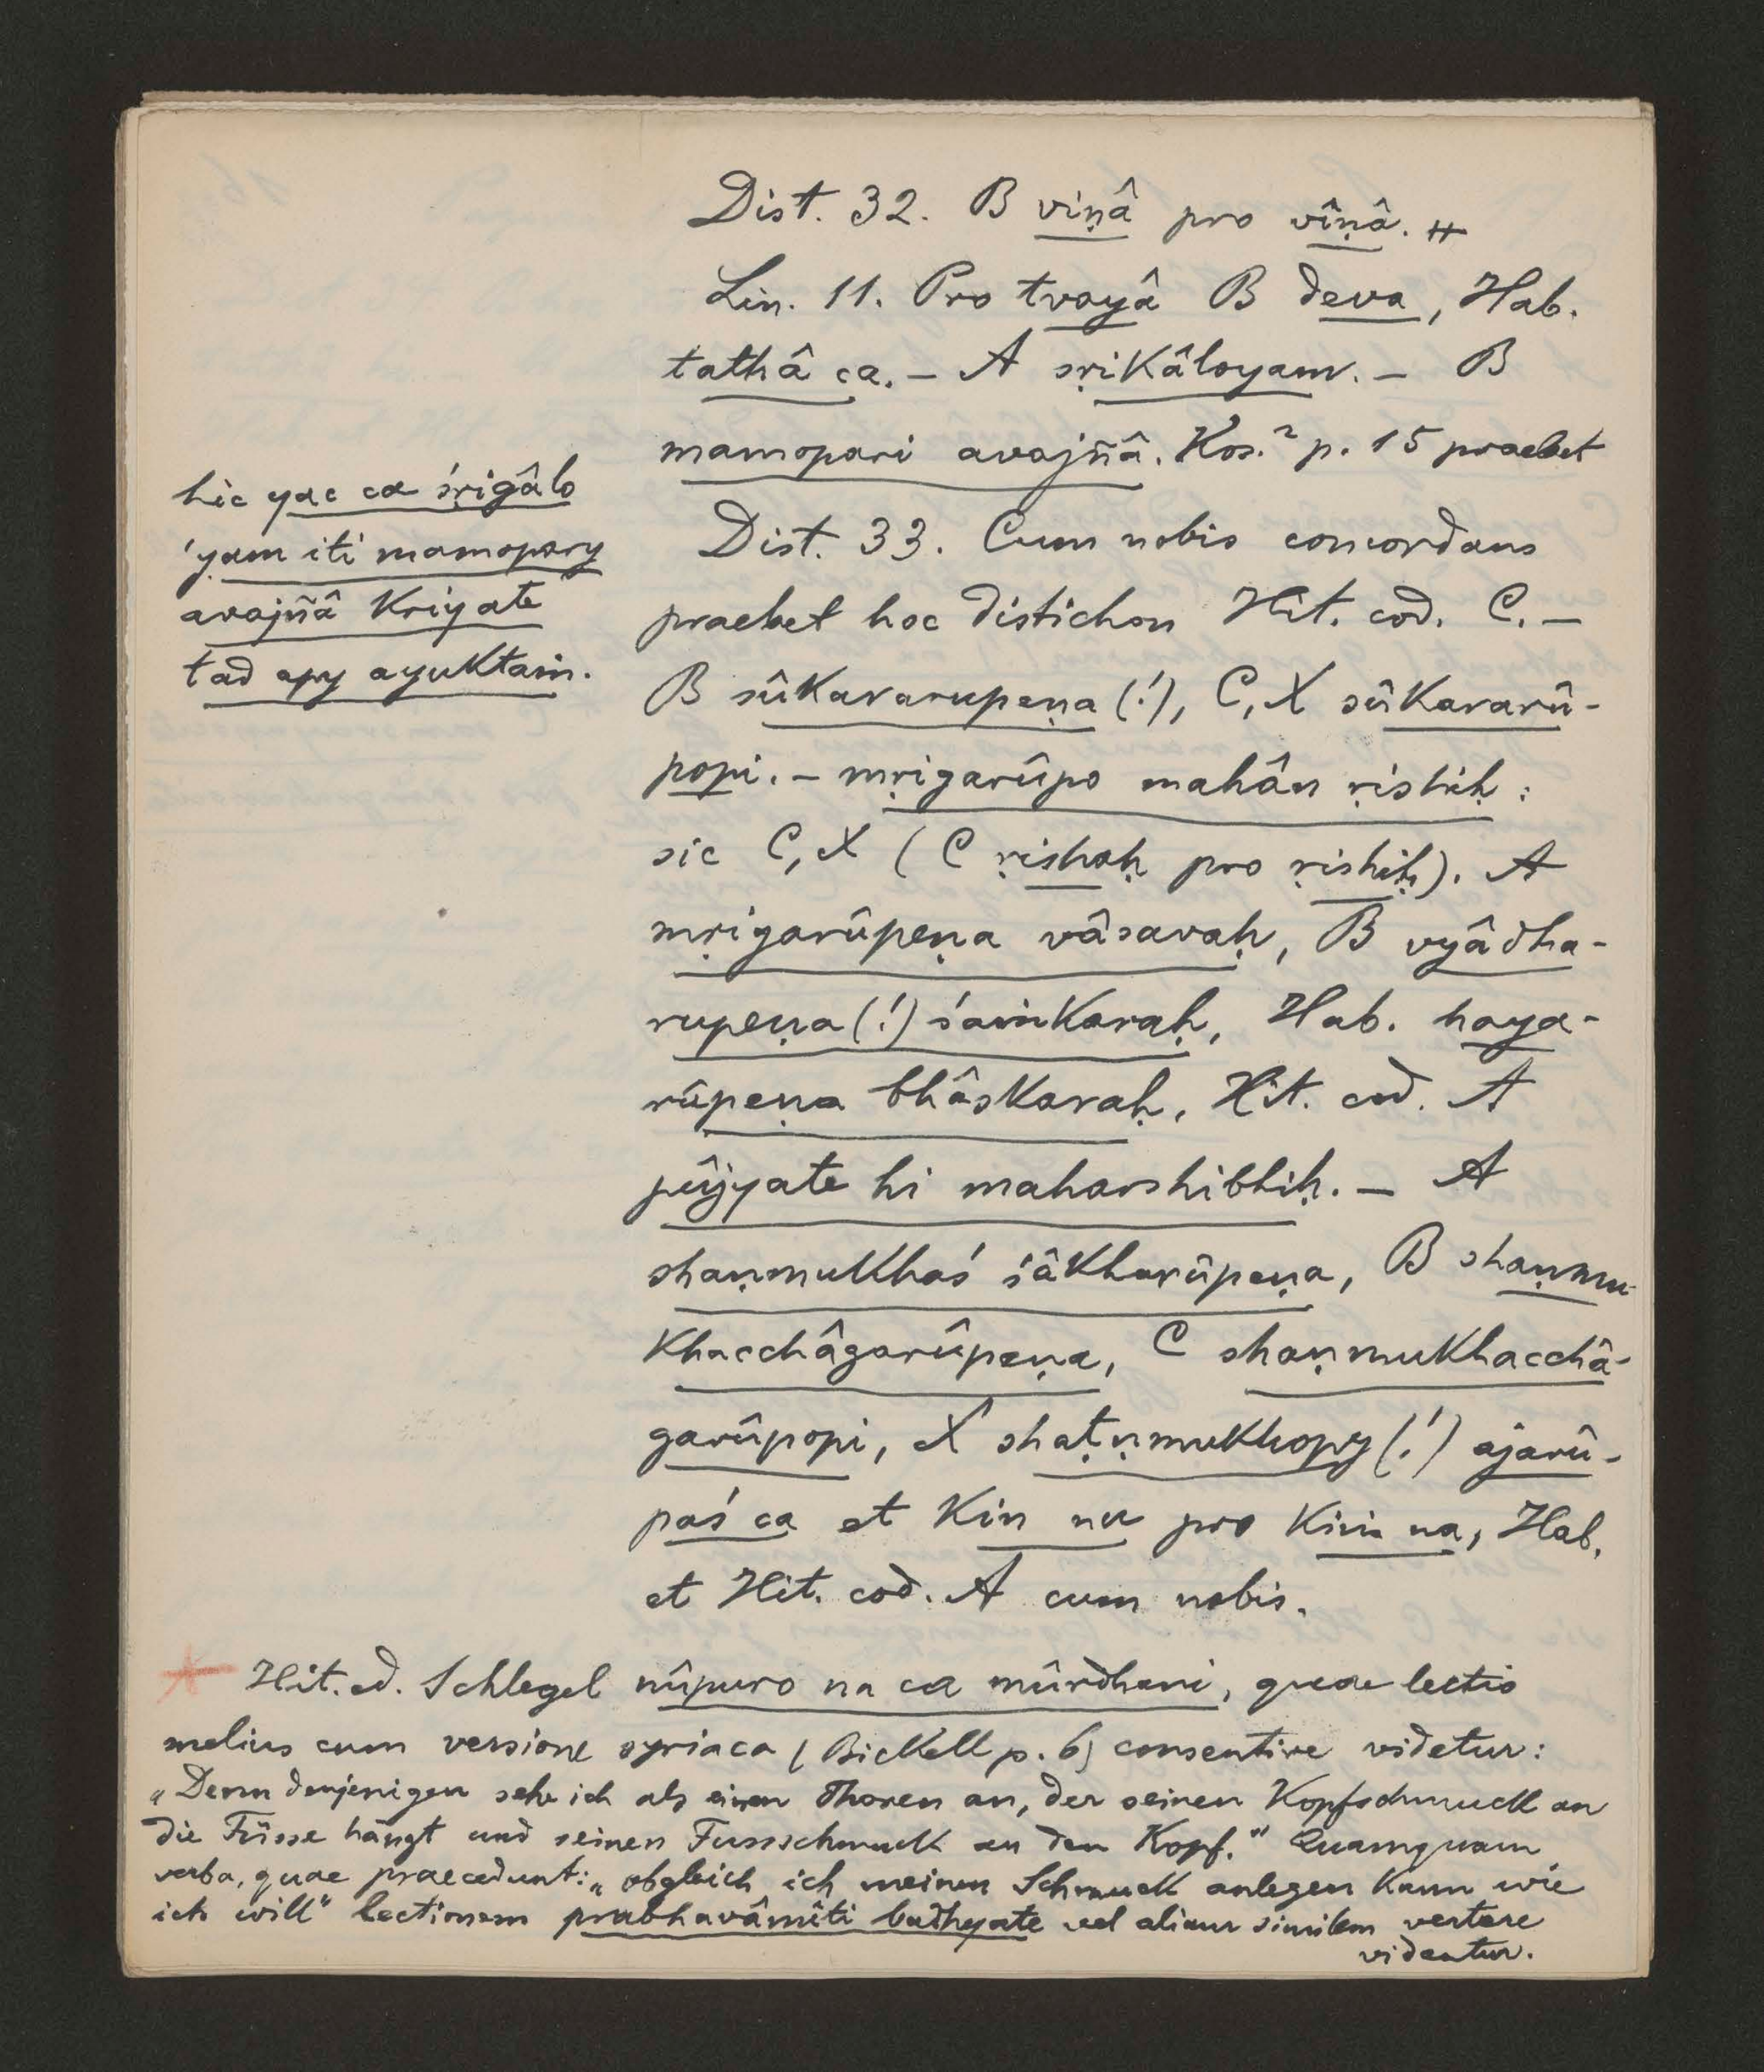 Dist. 32. B viṇâ pro vîṇâ. #
Lin. 11. Pro tvayâ B deva, Hab.
tathâ ca. – A sṛikâloyam. – B
mamopari avajñâ. Kos.² p. 15 praebet
hic yac ca śṛigâlo
'yam iti mamopary
avajñâ kriyate
tad apy ayuktaṁ.
Dist. 33. Cum nobis concordans
praebet hoc distichon Hit. cod. C. –
B sûkavarupeṇa (!), C, X sûkararû-
popi. – mṛigarûpo mahân ṛishiḥ:
sic C, X (C ṛishaḥ pro ṛishiḥ). A
mṛigarûpeṇa vâsavaḥ, B vyâdha-
rupeṇa (!) śaṁkaraḥ, Hab. haya-
rûpeṇa bhâskaraḥ, Hit. cod. A
pûjyate hi maharshibhiḥ. – A
shaṇmukhaś śâkharûpeṇa, B shaṇmu-
khacchâgarûpeṇa, C shaṇmukhacchâ-
garûpopi, X shaṭṇmukhopy (!) ajarû-
paś ca et kin nu pro kiṁ na, Hab.
et Hit. cod. A cum nobis.
* Hit. ed. Schlegel nûpuro na ca mûrdhani, quae lectio
melius cum versione syriaca (Bickell p. 6) consentire videtur:
„Denn denjenigen sehe ich als einen Thoren an, der seinen Kopfschmuck an
die Füsse hängt und seinen Fussschmuck an den Kopf." Quamquam
verba, quae praecedunt: „obgleich ich meinen Schmuck anlegen kann wie
ich will" lectionem prabhavâmîti badhyate vel aliam similem vertere
videntur.